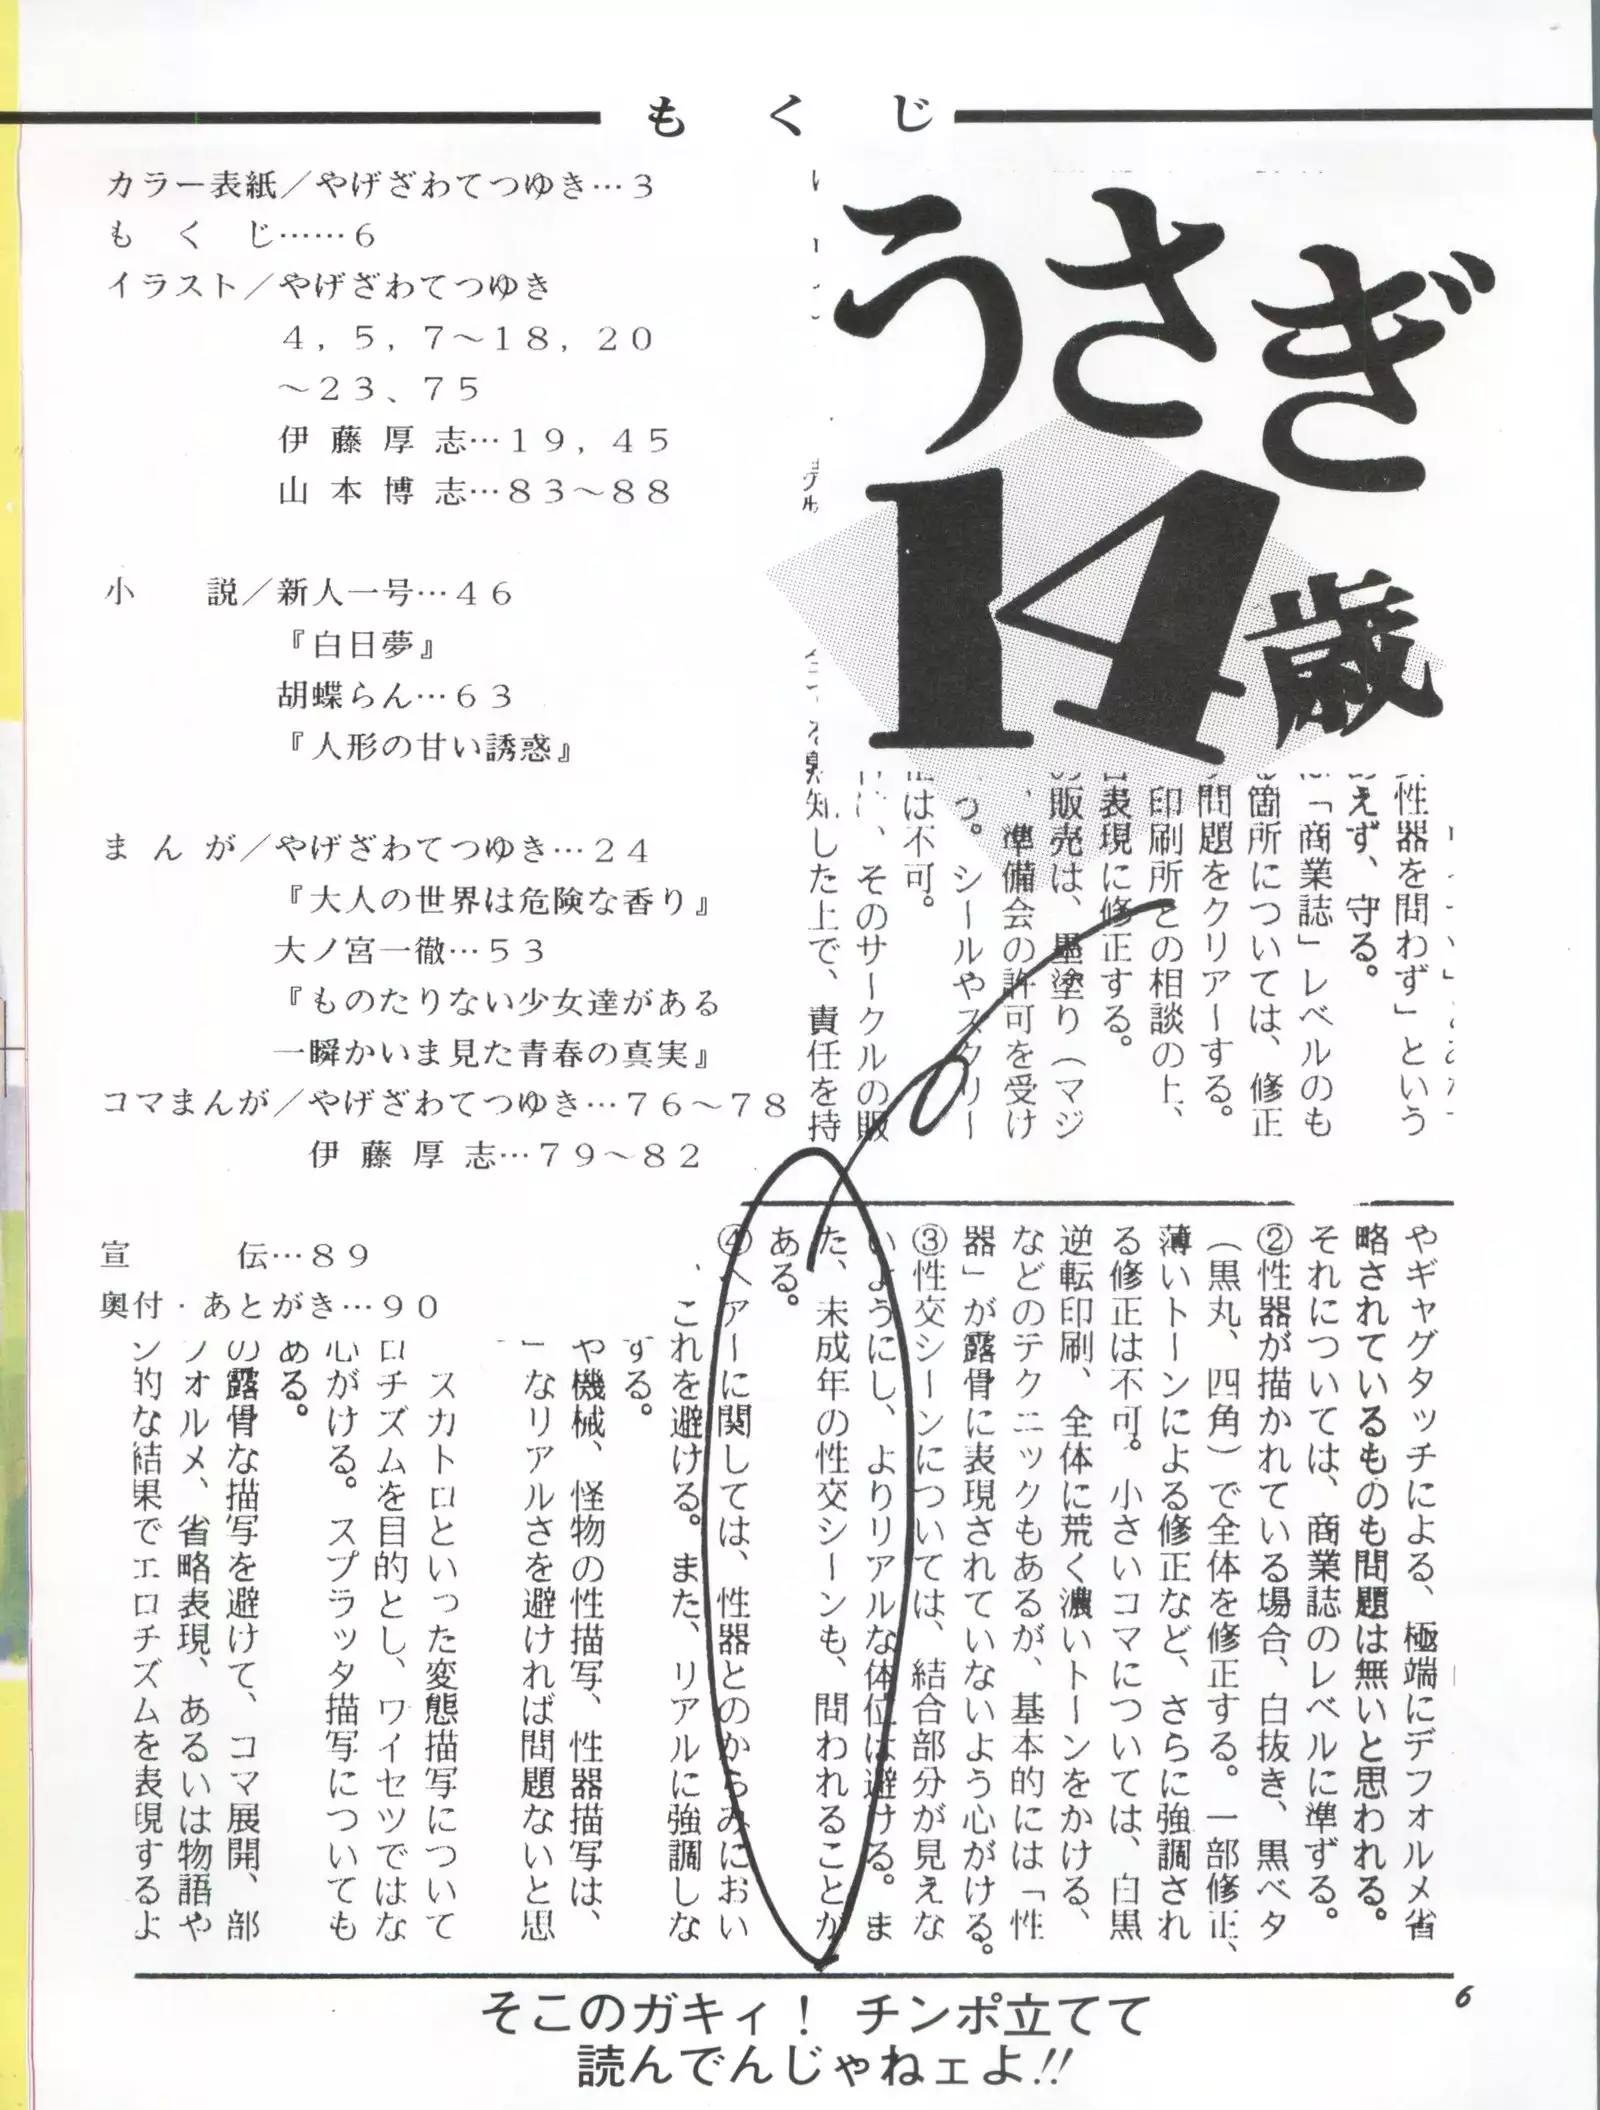 もくじ
カラー表紙／やげざわてつゆき…3
もくじ……6
イラスト／やげざわてつゆき
4，5，7〜18，20
〜23、75
伊藤厚志…19，45
山本博志…83〜88
小説／新人一号…46
『白日夢』
胡蝶らん…63
『人形の甘い誘惑』
まんが／やげざわてつゆき…24
『大人の世界は危険な香り』
大ノ宮一徹…53
『ものたりない少女達がある
一瞬かいま見た青春の真実』
コマまんが／やげざわてつゆき…76〜78
伊藤厚志…79〜82
宣伝…89
奥付・あとがき…90
うさぎ
14歳
性器を問わず」という
えず、守る。
「商業誌」レベルのも
箇所については、修正
問題をクリアーする。
印刷所との相談の上、
表現に修正する。
の販売は、墨塗り（マジ
、準備会の許可を受け
つ。シールやスクリー
は不可。
、そのサークルの販
知した上で、責任を持
やギャグタッチによる、極端にデフォルメ省
略されているものも問題は無いと思われる。
それについては、商業誌のレベルに準ずる。
②性器が描かれている場合、白抜き、黒ベタ
（黒丸、四角）で全体を修正する。一部修正、
薄いトーンによる修正など、さらに強調され
る修正は不可。小さいコマについては、白黒
逆転印刷、全体に荒く濃いトーンをかける、
などのテクニックもあるが、基本的には「性
器」が露骨に表現されていないよう心がける。
③性交シーンについては、結合部分が見えな
いようにし、よりリアルな体位は避ける。ま
た、未成年の性交シーンも、問われることが
ある。
④ヘアーに関しては、性器とのからみにおい
、これを避ける。また、リアルに強調しな
する。
や機械、怪物の性描写、性器描写は、
なリアルさを避ければ問題ないと思
スカトロといった変態描写について
ロチズムを目的とし、ワイセツではな
心がける。スプラッタ描写についても
める。
の露骨な描写を避けて、コマ展開、部
フォルメ、省略表現、あるいは物語や
ン的な結果でエロチズムを表現するよ
そこのガキィ！ チンポ立てて
読んでんじゃねェよ!!
6